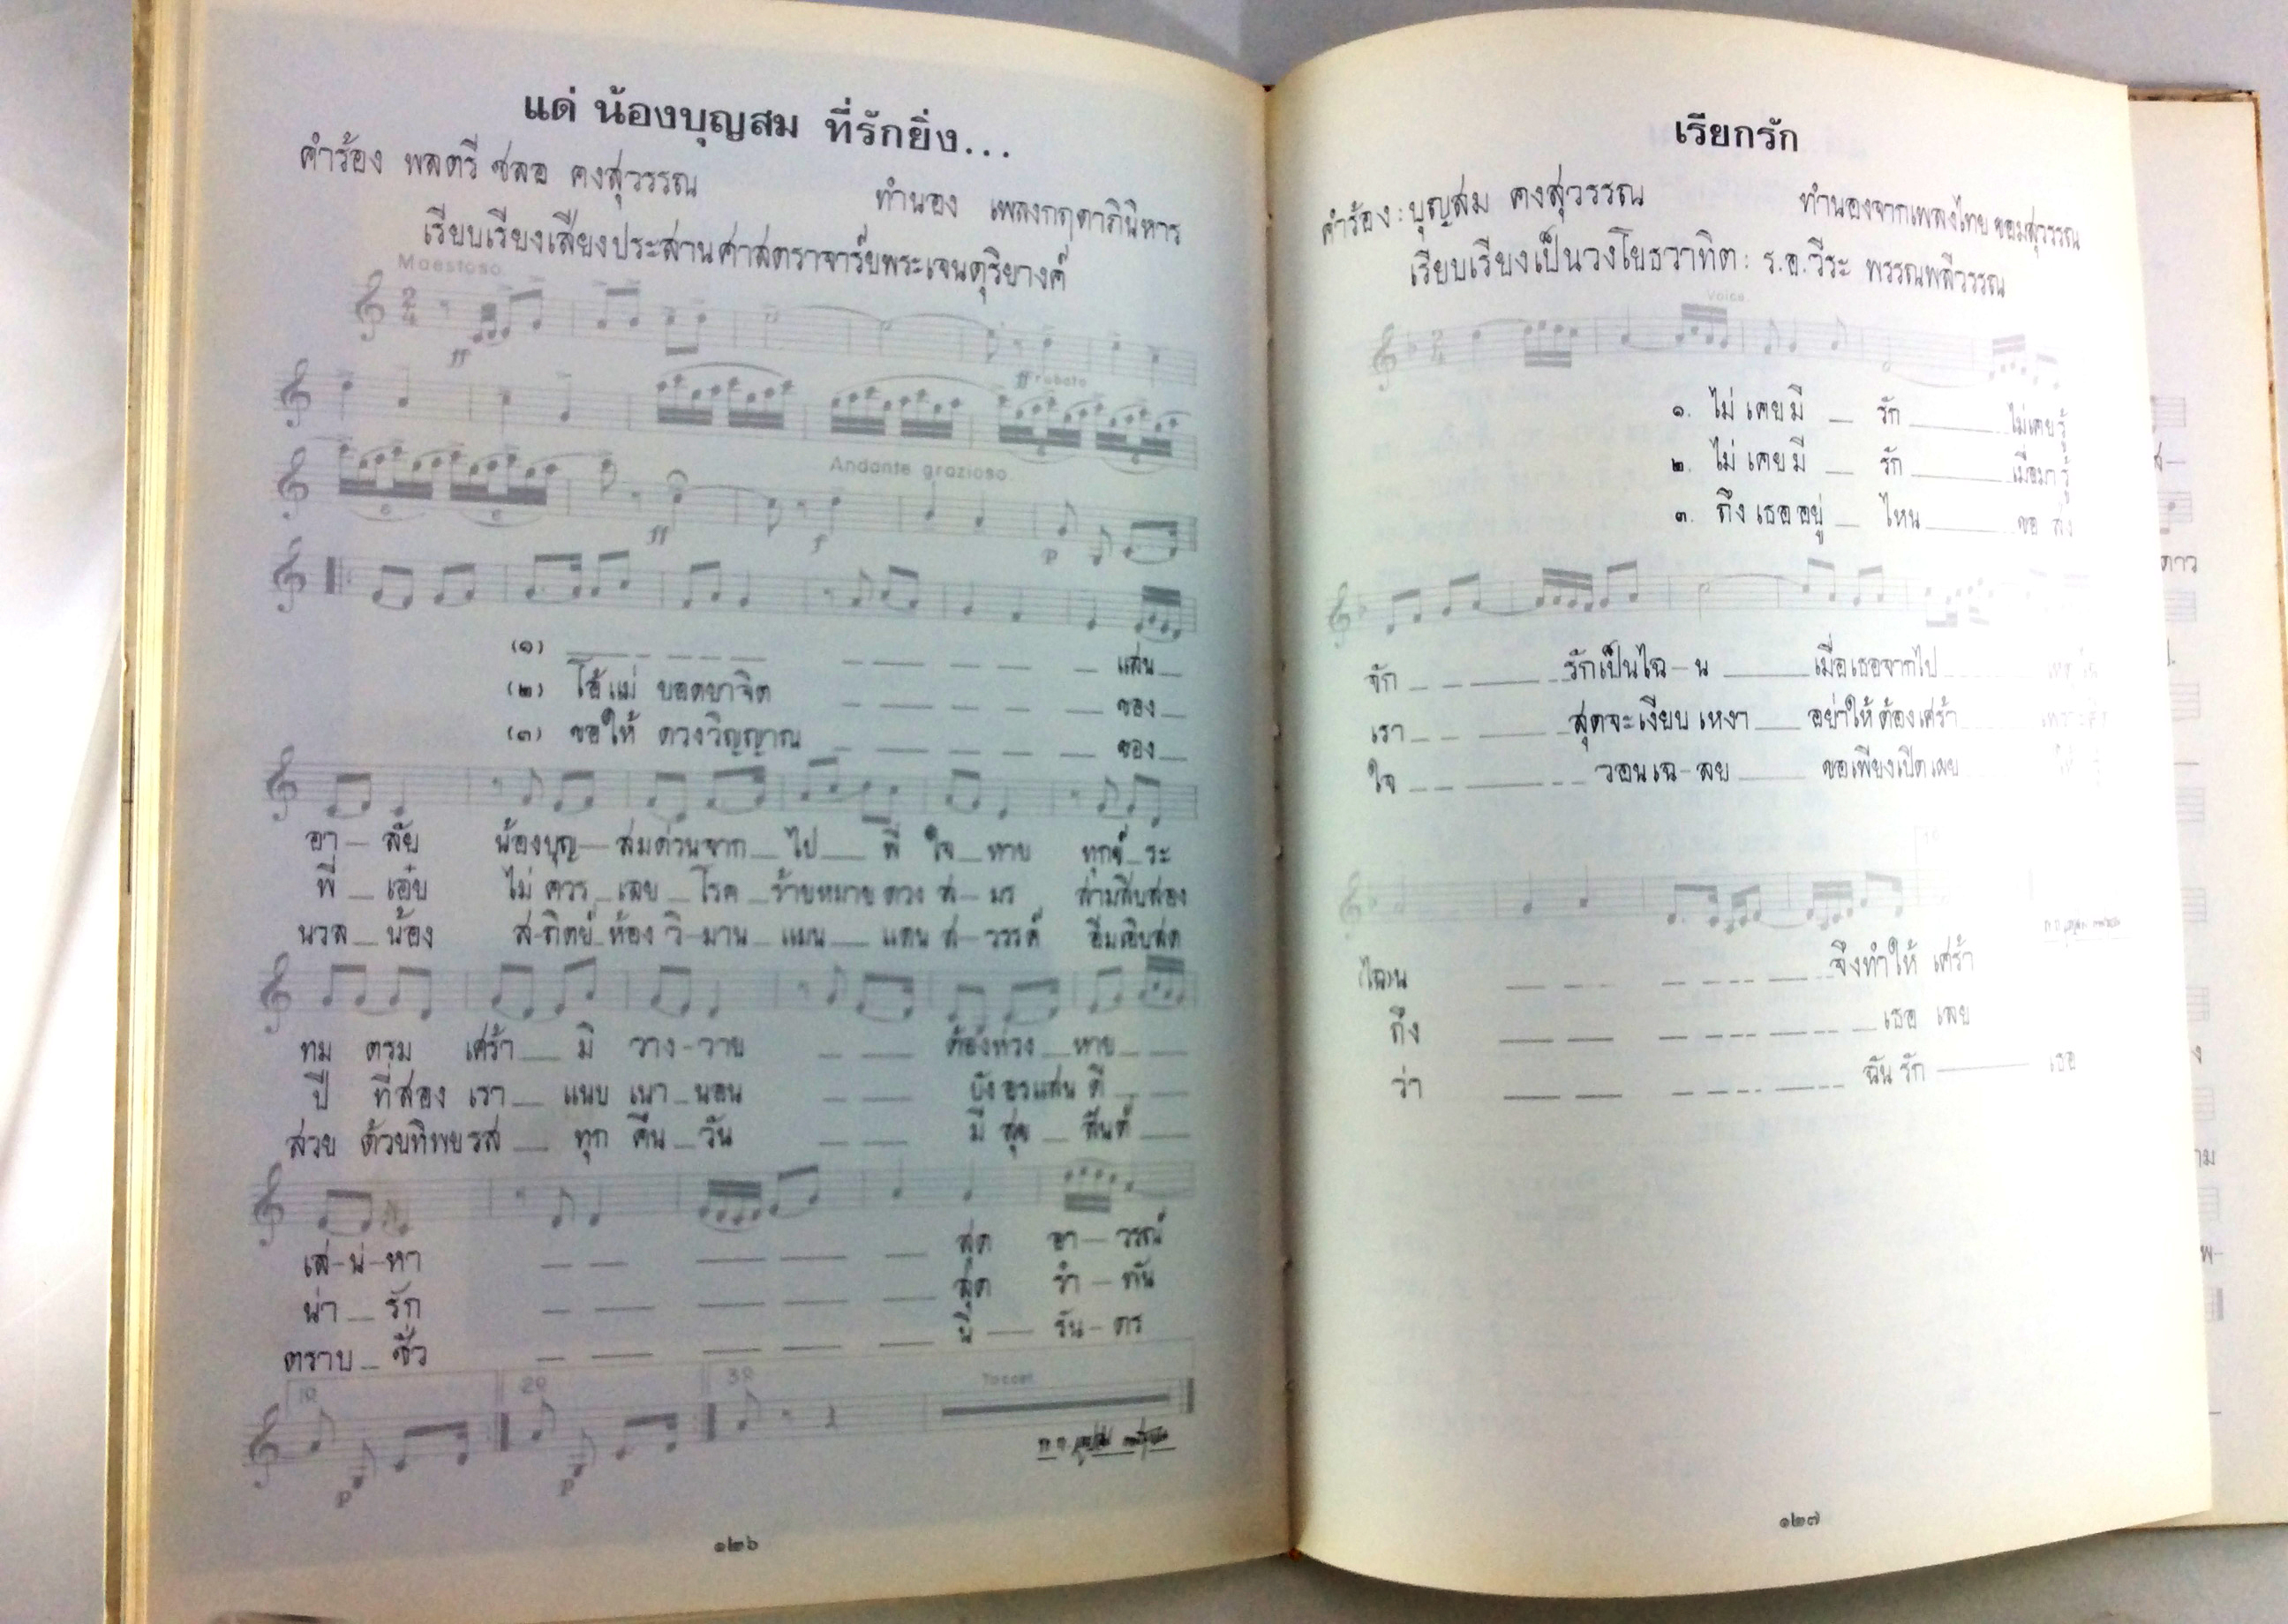 แด่ น้องบุญสม ที่รักยิ่ง...
คำร้อง พลตรี ชลอ คงสุวรรณ
ทำนอง เพลงกฤดาภินิหาร
เรียบเรียงเสียงประสานศาสตราจารย์พระเจนดุริยางค์
Maestoso
2
4
ff
ff rubato
Andante grazioso
6 6 ff f p
(๑) _ _ _ _ _ แสน_
(๒) โอ้แม่ ยอดยาจิต _ _ _ _ ของ_
(๓) ขอให้ ดวงวิญญาณ _ _ _ _ ของ_
อา_ ลัย น้องบุญ_ สมด่วนจาก_ ไป_ พี่ ใจ_หาย ทุกข์_ระ
พี่ _ เอ๋ย ไม่ ควร_ เลย_ โรค_ร้ายหมายดวง ส-มร สามสิบสอง
นวล_ น้อง ส-ถิตย์_ห้อง วิ-มาน_ แมน_ แดน ส-วรรค์ อิ่มเอิบสด
ทม ตรม เศร้า_ มิ วาง-วาย _ _ ต้องห่วง_หาย_
ปี ที่สอง เรา_ แนบ เนา_นอน _ _ ยังอรแสน ดี_
สวย ด้วยทิพยรส_ ทุก คืน_วัน _ _ มี สุข_ สันต์_
เส่-น่-หา _ _ _ _ _ สุด อา-วรณ์
น่า_ รัก _ _ _ _ _ สุด รำ-พัน
ตราบ_ชั่ว _ _ _ _ _ นิ_ รัน-ดร
1º 2º 3º Taccet
p p
๑๒๖
เรียกรัก
คำร้อง: บุญสม คงสุวรรณ
ทำนองจากเพลงไทย ขอมสุวรรณ
เรียบเรียงเป็นวงโยธวาทิต: ร.อ.วีระ พรรณพลีวรรณ
Voice
๑. ไม่ เคยมี _ รัก_ไม่เคยรู้
๒. ไม่ เคยมี _ รัก_เมื่อมารู้
๓. ถึง เธออยู่ _ ไหน_ขอ ส่ง
จัก _ _ _รักเป็นไฉ-น _เมื่อเธอจากไป_
เรา_ _ _สุดจะเงียบ เหงา_ อย่าให้ต้องเศร้า_
ใจ _ _ _ วอนเฉ-ลย_ ขอเพียงเปิดเผย
ไฉน _ _ _ _จึงทำให้ เศร้า
ถึง _ _ _ _เธอ เลย
ว่า _ _ _ _ ฉัน รัก_ เธอ
๑๒๗
ดาว